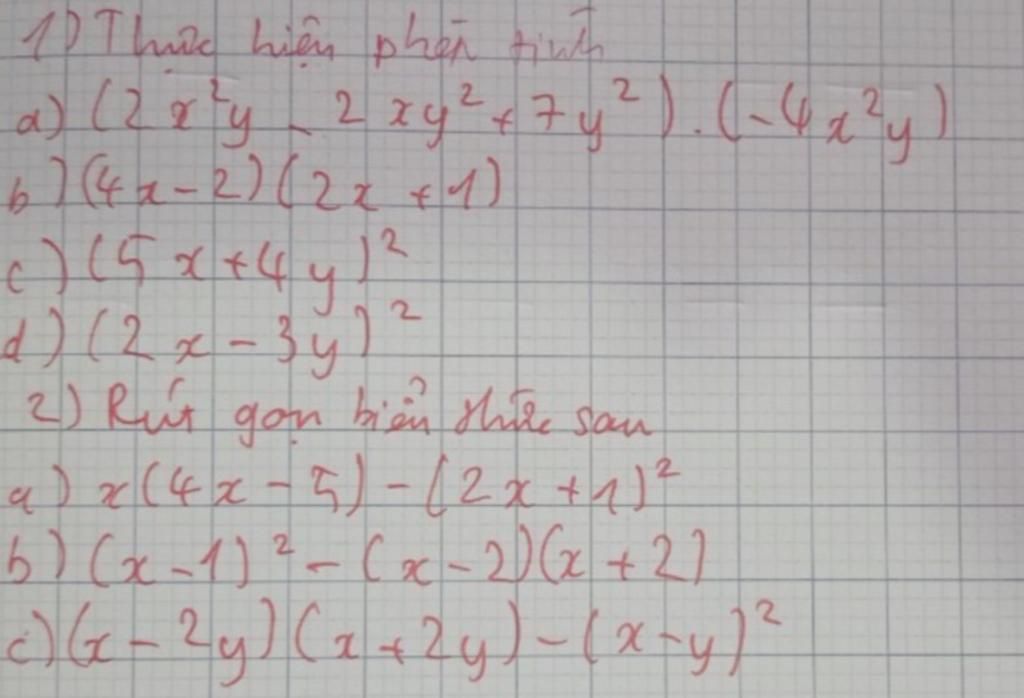 1) Thực hiện phép tính
a) (2x²y - 2xy² + 7y²) . (-4x²y)
b) (4x - 2)(2x + 1)
c) (5x + 4y)²
d) (2x - 3y)²
2) Rút gọn biểu thức sau
a) x(4x - 5) - (2x + 1)²
b) (x - 1)² - (x - 2)(x + 2)
c) (x - 2y)(x + 2y) - (x - y)²